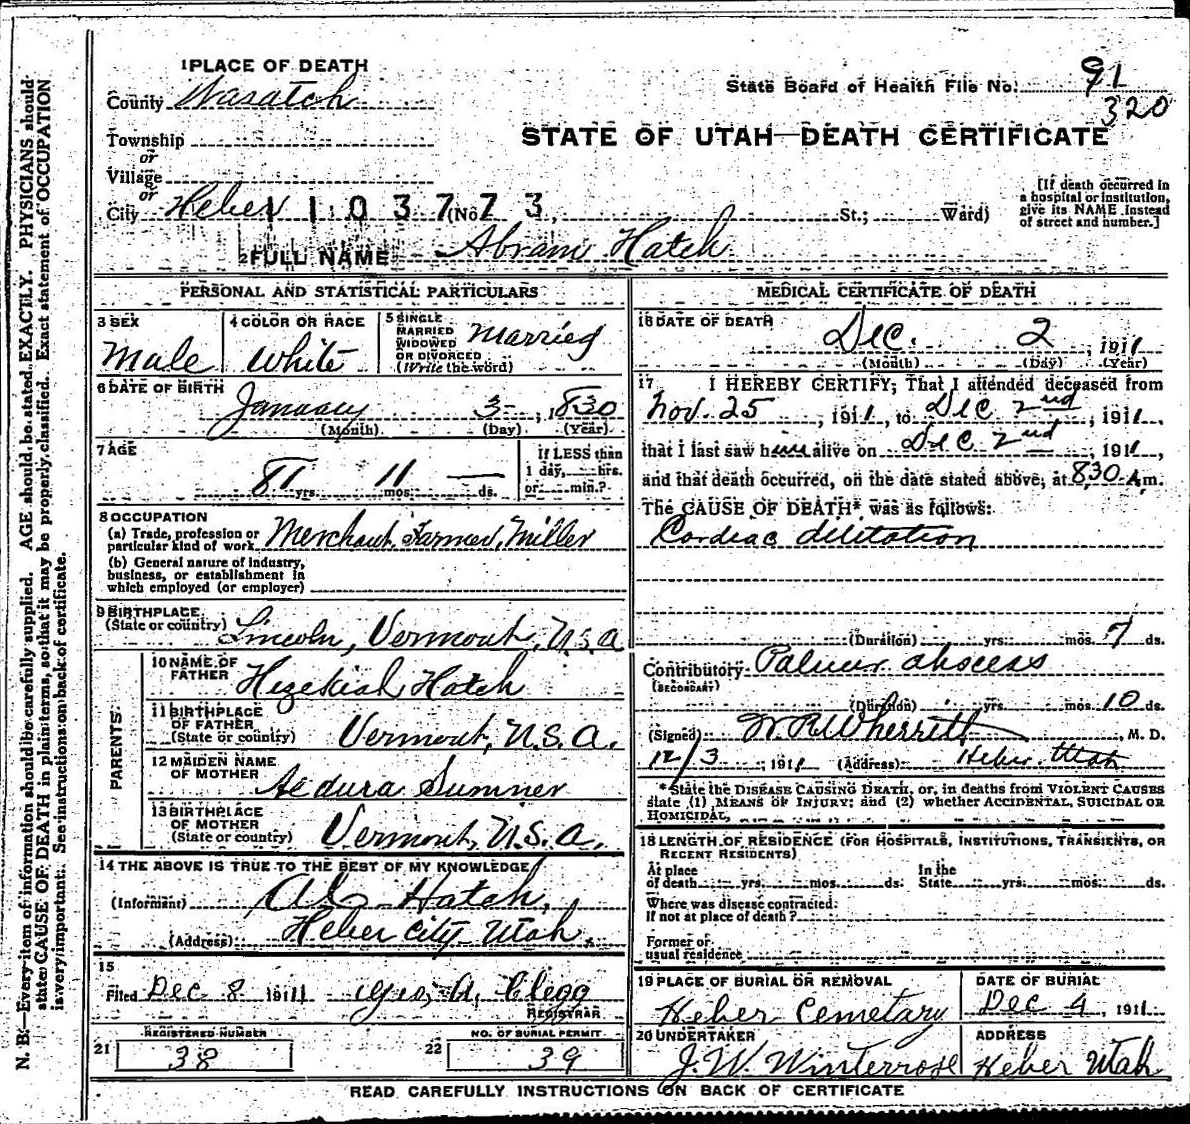 1 PLACE OF DEATH
County Wasatch
State Board of Health File No. 91
320
Township
or
Village
or
City Heber 1103773 (No. St.; Ward)
STATE OF UTAH—DEATH CERTIFICATE
[If death occurred in
a hospital or institution,
give its NAME instead
of street and number.]
2 FULL NAME Abram Hatch
PERSONAL AND STATISTICAL PARTICULARS
3 SEX
Male
4 COLOR OR RACE
White
5 SINGLE
MARRIED
WIDOWED
OR DIVORCED
(Write the word)
Married
6 DATE OF BIRTH
January 3, 1830
(Month) (Day) (Year)
7 AGE
81 yrs. 11 mos. — ds.
If LESS than
1 day, hrs.
or min.?
8 OCCUPATION
(a) Trade, profession or
particular kind of work Merchant, Farmer, Miller
(b) General nature of industry,
business, or establishment in
which employed (or employer)
9 BIRTHPLACE
(State or country) Lincoln, Vermont, U.S.A.
PARENTS
10 NAME OF
FATHER Hezekiah Hatch
11 BIRTHPLACE
OF FATHER
(State or country) Vermont, U.S.A.
12 MAIDEN NAME
OF MOTHER Aldura Sumner
13 BIRTHPLACE
OF MOTHER
(State or country) Vermont, U.S.A.
14 THE ABOVE IS TRUE TO THE BEST OF MY KNOWLEDGE
(Informant) Hatch,
(Address) Heber City Utah.
15
Filed Dec 8 1911 Geo. A. Clegg
REGISTRAR
REGISTERED NUMBER
21 38
NO. OF BURIAL PERMIT
22 39
MEDICAL CERTIFICATE OF DEATH
16 DATE OF DEATH
Dec. 2, 1911
(Month) (Day) (Year)
17 I HEREBY CERTIFY, That I attended deceased from
Nov. 25, 1911, to Dec 2nd, 1911,
that I last saw him alive on Dec. 2nd, 1911,
and that death occurred, on the date stated above, at 830 A.m.
The CAUSE OF DEATH* was as follows:
Cardiac dilitation
(Duration) yrs. mos. 7 ds.
Contributory Palmer abscess
(SECONDARY)
(Duration) yrs. mos. 10 ds.
(Signed) W.R. Wherritt, M. D.
12/3, 1911 (Address) Heber. Utah
*State the DISEASE CAUSING DEATH, or, in deaths from VIOLENT CAUSES
state (1) MEANS OF INJURY; and (2) whether ACCIDENTAL, SUICIDAL OR
HOMICIDAL.
18 LENGTH OF RESIDENCE (FOR HOSPITALS, INSTITUTIONS, TRANSIENTS, OR
RECENT RESIDENTS)
At place
of death yrs. mos. ds.
In the
State yrs. mos. ds.
Where was disease contracted,
If not at place of death?
Former or
usual residence
19 PLACE OF BURIAL OR REMOVAL
Heber Cemetary
DATE OF BURIAL
Dec 4, 1911
20 UNDERTAKER
J. W. Winterrose
ADDRESS
Heber Utah
READ CAREFULLY INSTRUCTIONS ON BACK OF CERTIFICATE
N. B.—Every item of information should be carefully supplied. AGE should be stated EXACTLY. PHYSICIANS should
state CAUSE OF DEATH in plain terms, so that it may be properly classified. Exact statement of OCCUPATION
is very important. See instructions on back of certificate.